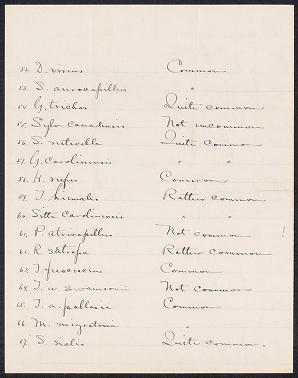 52. D. virens Common
53. S. aurocapillus "
54. G. trichas Quite common
55. Sylv. canadensis Not uncommon
56. S. ruticilla Quite Common
57. G. carolinensis " "
58. H. rufus Common
59. T. hiemalis Rather common
60. Sitta Carolinensis " "
61. P. atricapillus Not common
62. R. satrapa Rather common
63. T. fuscescens Common
64. T. u. swainsonii Not common
65. T. a. pallasii Common
66. M. migratoria "
67. S. sialis Quite common.